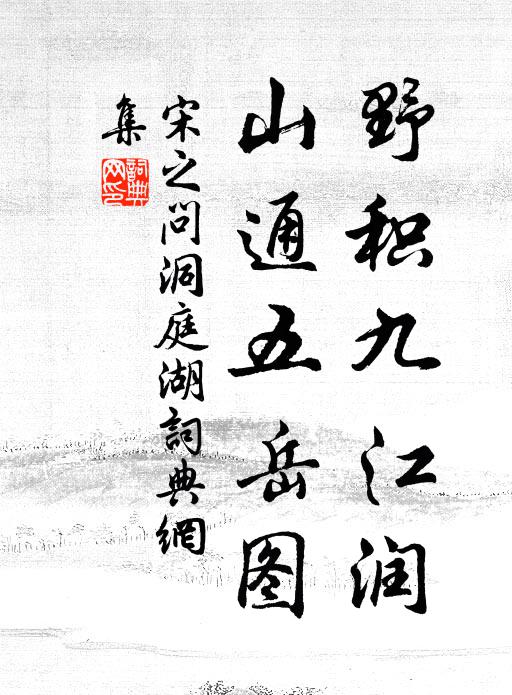 野积九江润
山通五岳图
宋之问洞庭湖詞典網
集
詞典
网印